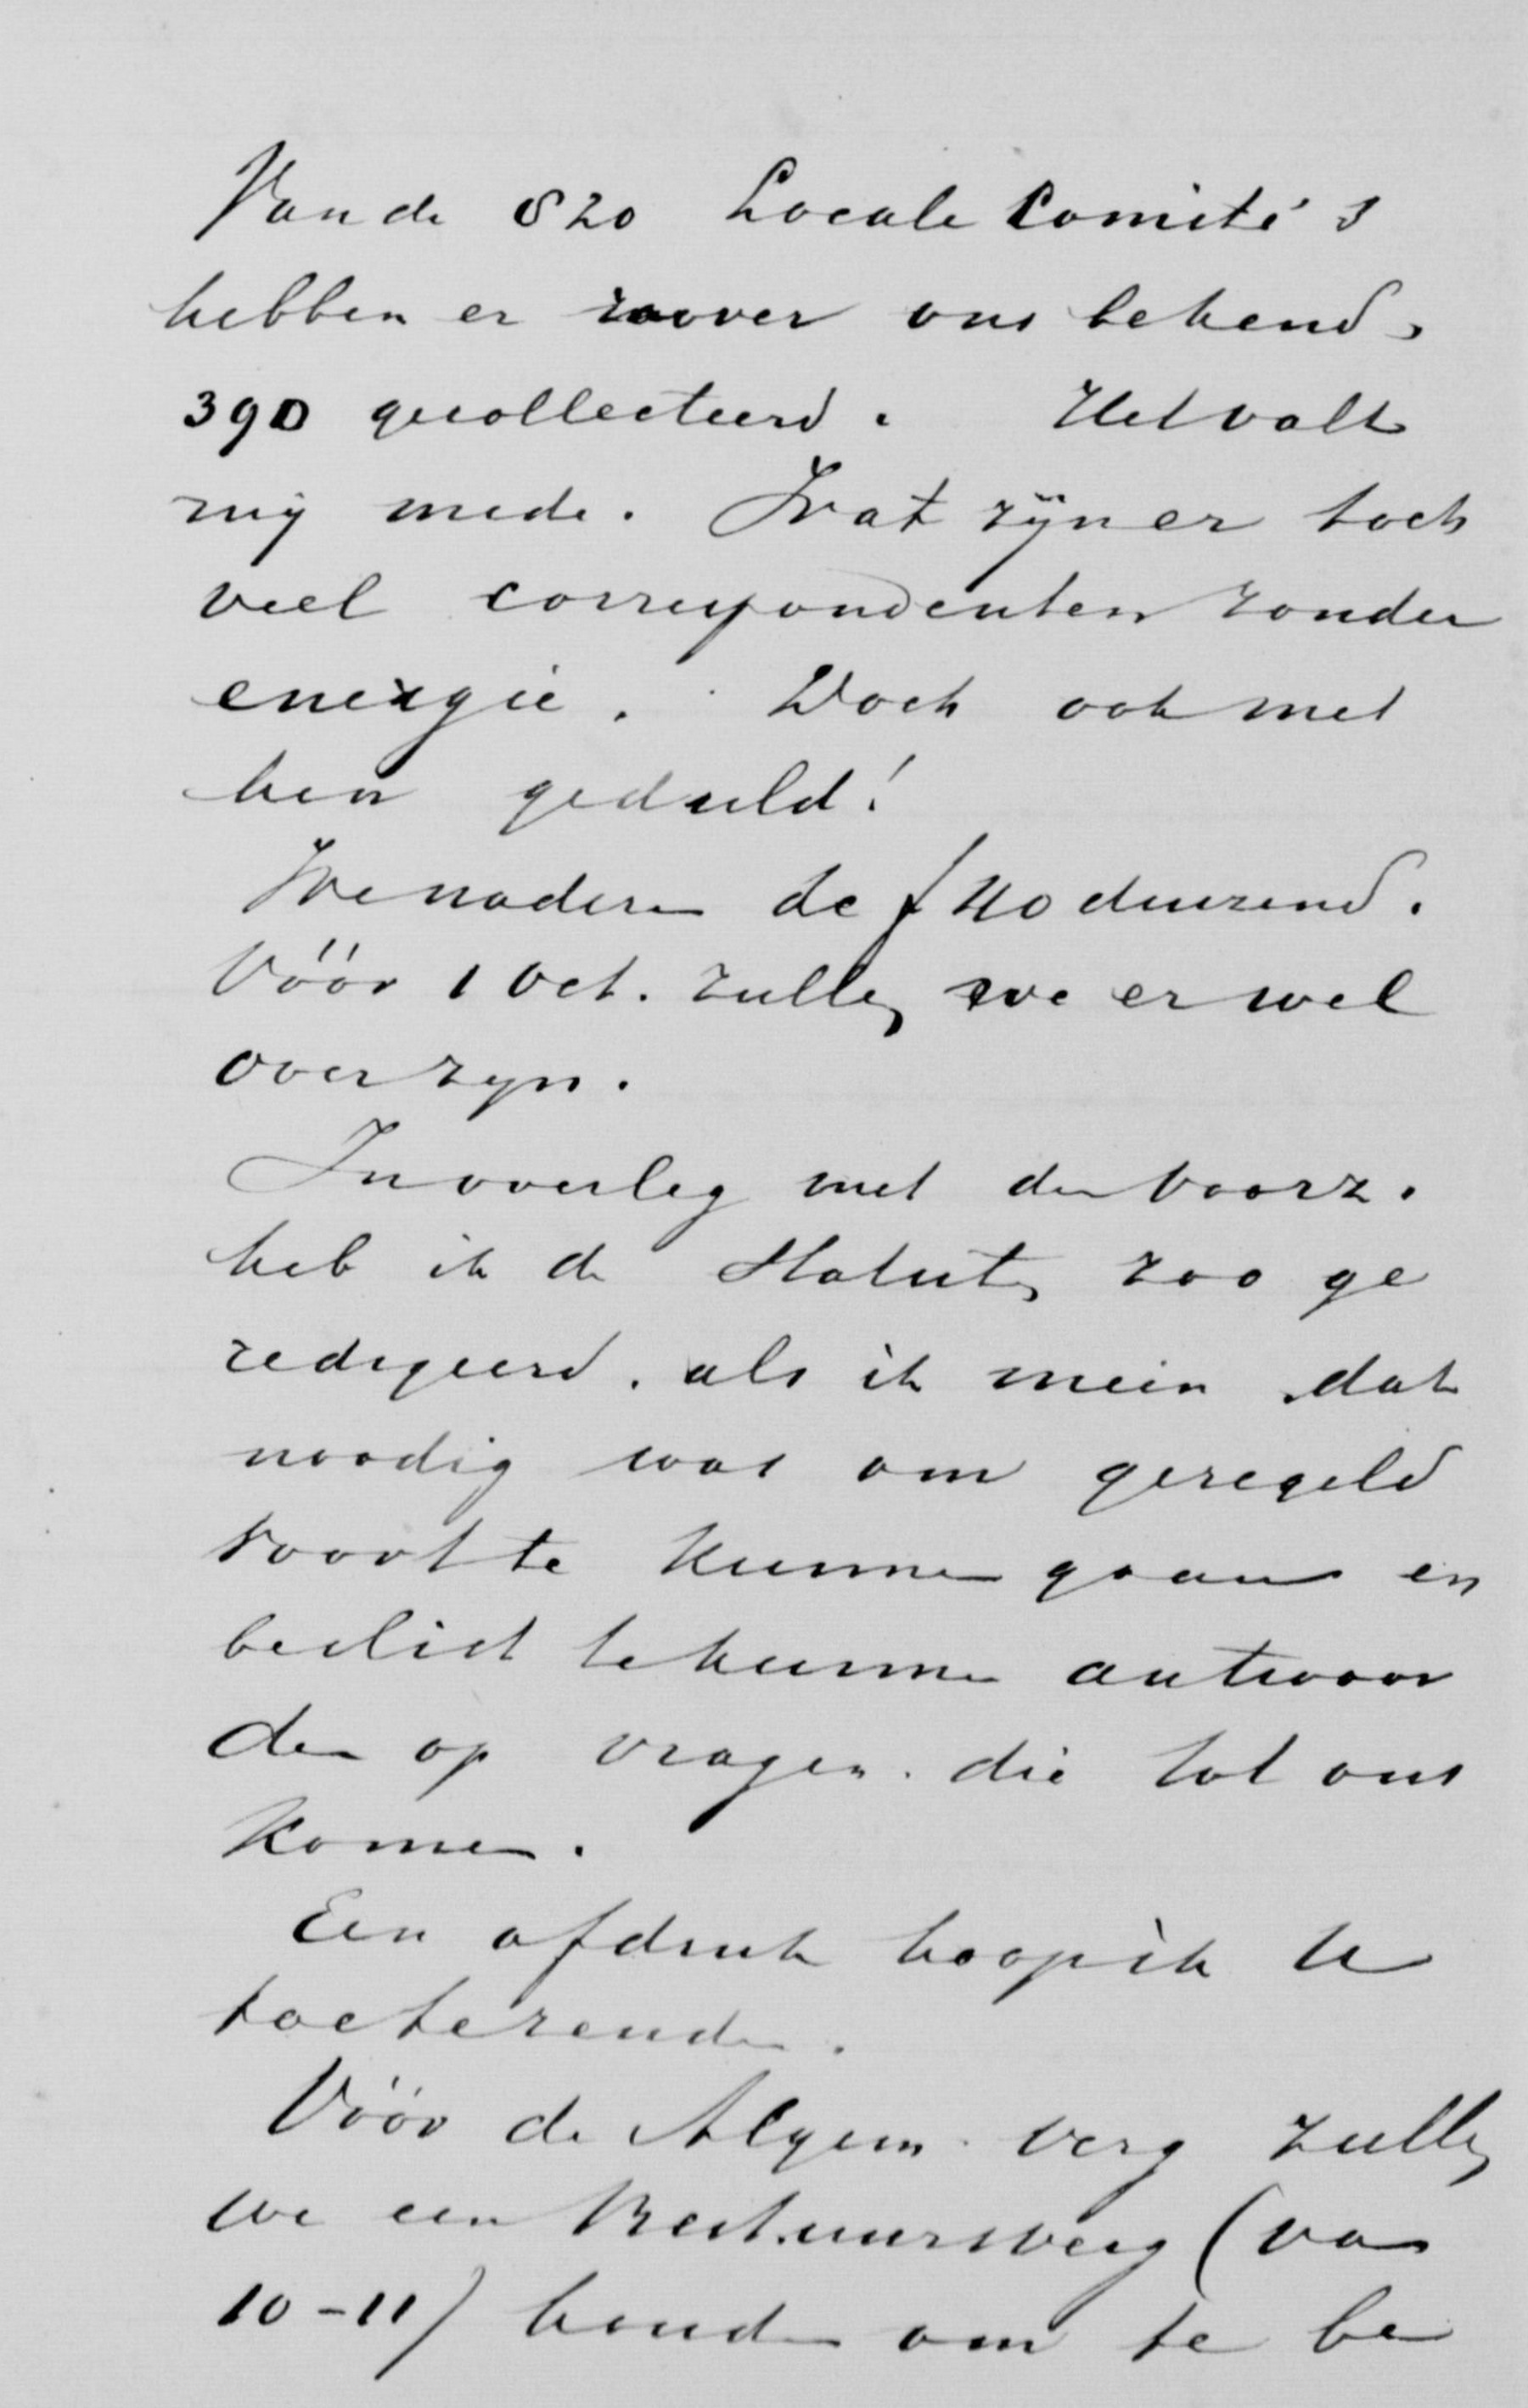 Van de 820 Locale Comité's
hebben er zoover ons bekend,
390 gecollecteerd. Het valt
mij mede. Wat zijn er toch
veel correspondenten zonder
energie. Doch ook met
hen geduld!
We naderen de f 40 duizend.
Vóór 1 Oct. zullen we er wel
over zijn.
In overleg met den voorz.
heb ik de Statuten zoo ge
redigeerd. als ik mein dat
noodig was om geregeld
voort te kunnen gaan en
beslist te kunnen antwoor
den op vragen die tot ons
komen.
Een afdruk hoop ik U
toe te zenden.
Vóór de Algem. verg zullen
we een Bestuursverg (van
10-11) houden om te be